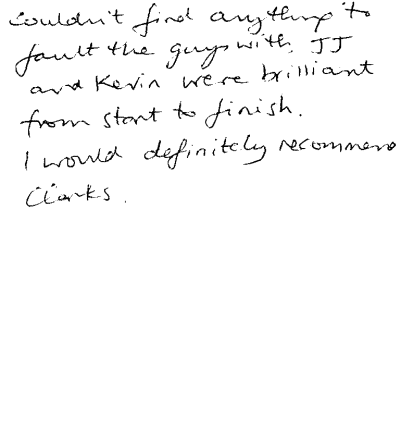 Couldn't find anything to
fault the guys with. JJ
and Kevin were brilliant
from start to finish.
I would definitely recommend
Clarks.